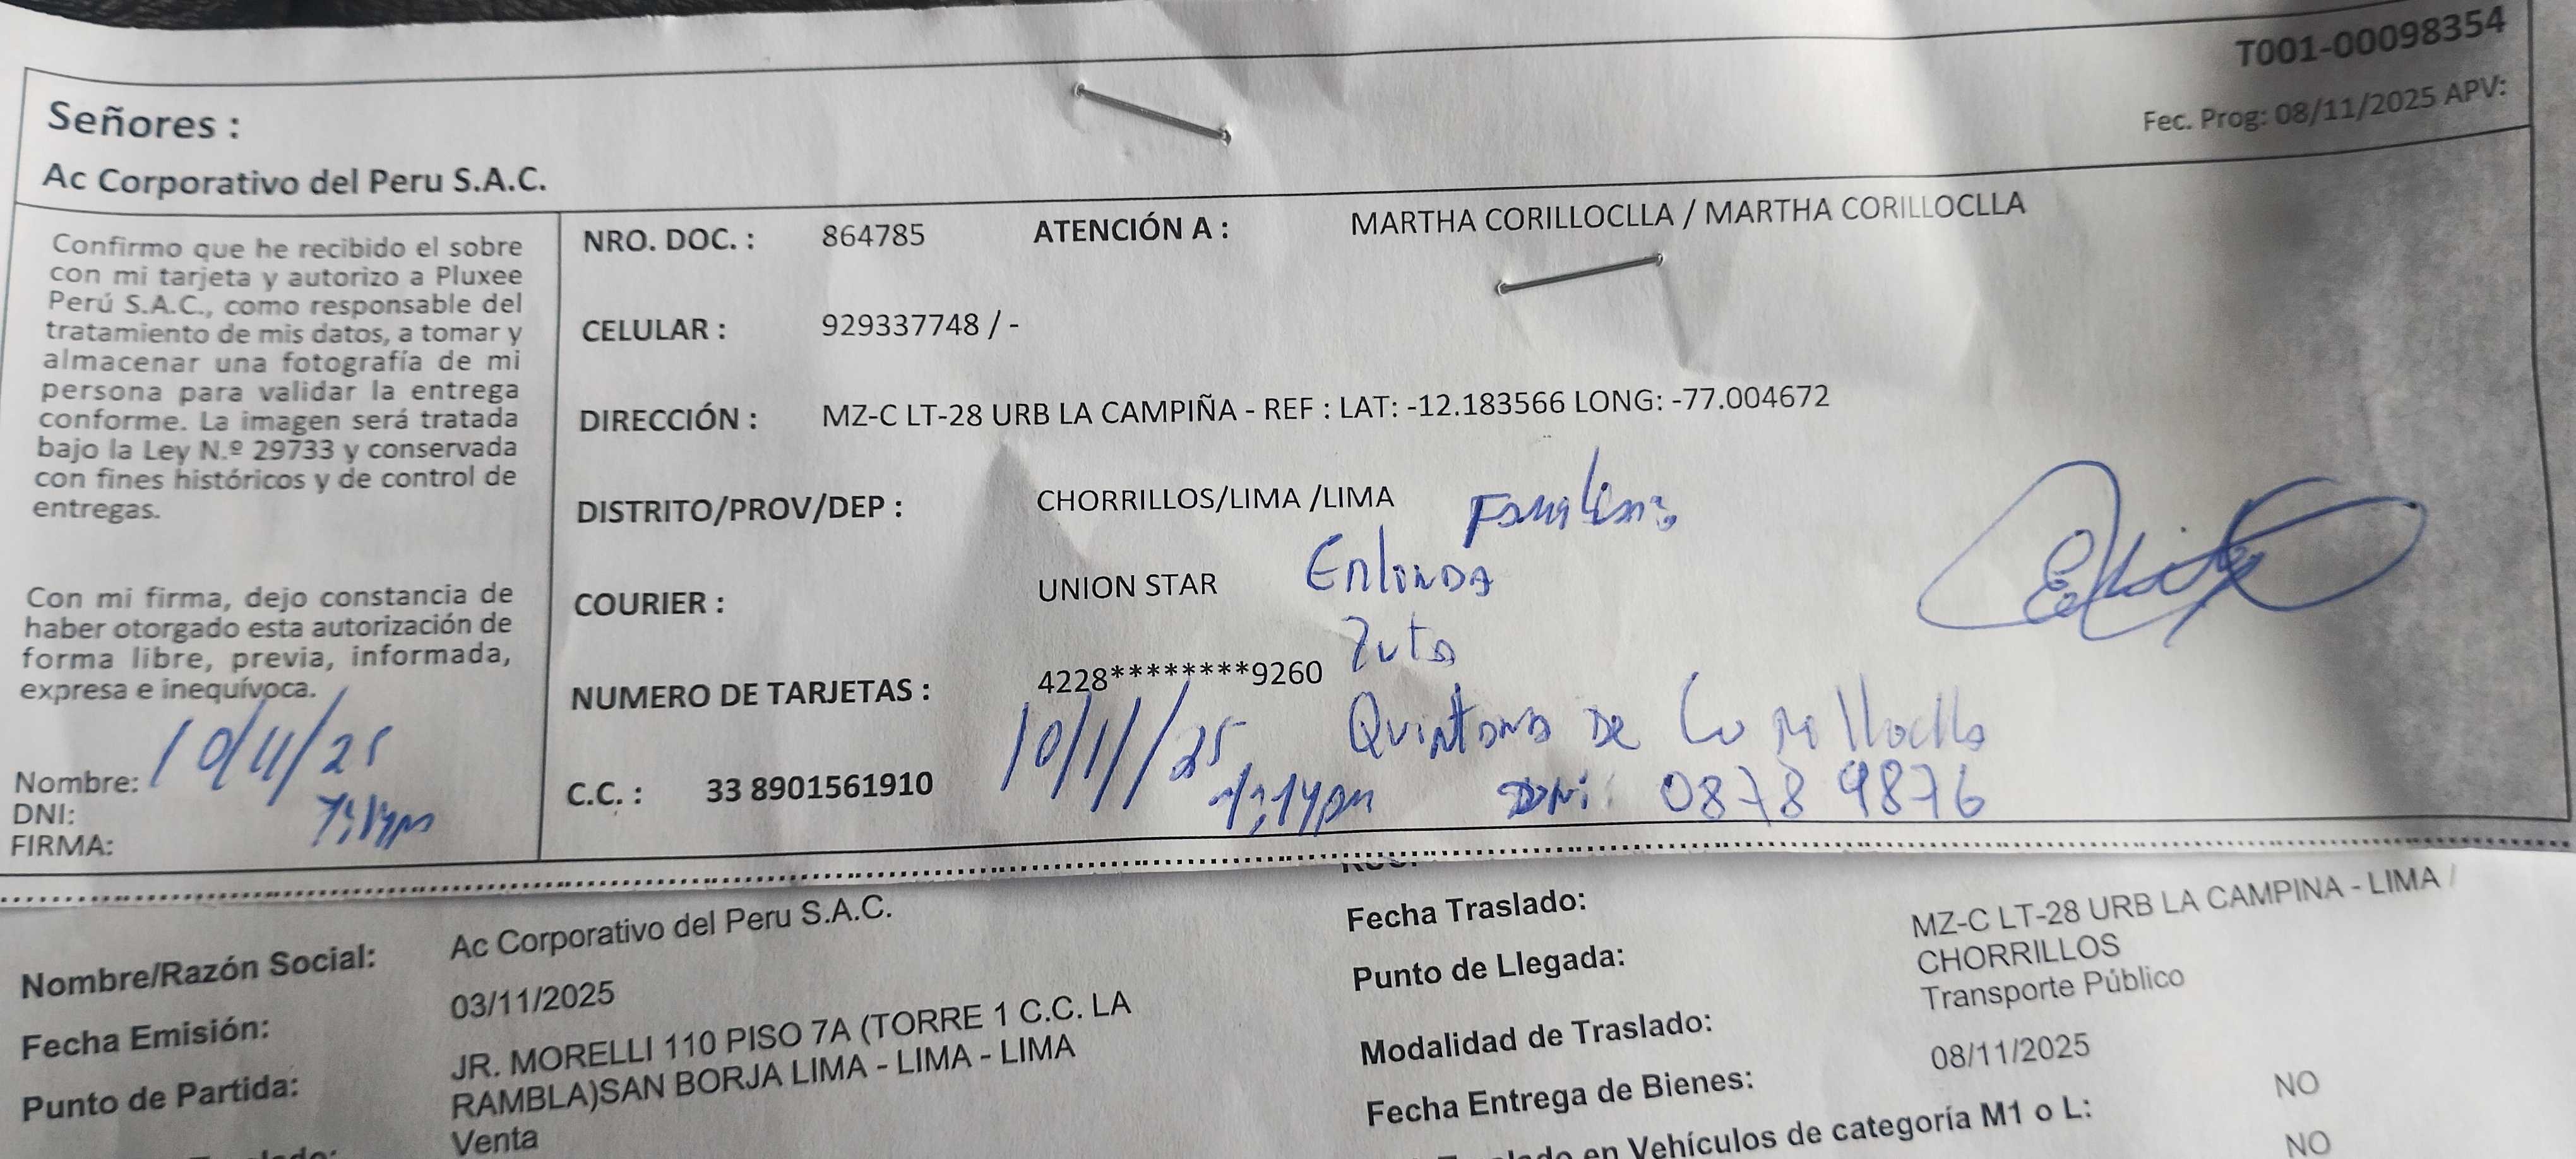 T001-00098354
Fec. Prog: 08/11/2025 APV:
Señores :
Ac Corporativo del Peru S.A.C.
Confirmo que he recibido el sobre
con mi tarjeta y autorizo a Pluxee
Perú S.A.C., como responsable del
tratamiento de mis datos, a tomar y
almacenar una fotografía de mi
persona para validar la entrega
conforme. La imagen será tratada
bajo la Ley N.º 29733 y conservada
con fines históricos y de control de
entregas.
Con mi firma, dejo constancia de
haber otorgado esta autorización de
forma libre, previa, informada,
expresa e inequívoca.
10/11/25
Nombre:
DNI:
FIRMA:
NRO. DOC. : 864785 ATENCIÓN A : MARTHA CORILLOCLLA / MARTHA CORILLOCLLA
CELULAR : 929337748 / -
DIRECCIÓN : MZ-C LT-28 URB LA CAMPIÑA - REF : LAT: -12.183566 LONG: -77.004672
DISTRITO/PROV/DEP : CHORRILLOS/LIMA /LIMA
COURIER : UNION STAR
NUMERO DE TARJETAS : 4228********9260
10/11/25 Quintana De Corillloclla
C.C. : 33 8901561910
DNI: 08789876
Nombre/Razón Social: Ac Corporativo del Peru S.A.C.
Fecha Emisión: 03/11/2025
Punto de Partida: JR. MORELLI 110 PISO 7A (TORRE 1 C.C. LA
RAMBLA)SAN BORJA LIMA - LIMA - LIMA
Venta
Fecha Traslado:
Punto de Llegada: MZ-C LT-28 URB LA CAMPINA - LIMA /
CHORRILLOS
Modalidad de Traslado: Transporte Público
Fecha Entrega de Bienes: 08/11/2025
en Vehículos de categoría M1 o L: NO
NO